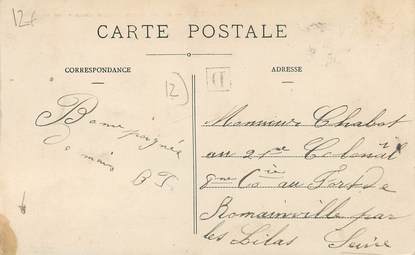 12€
CARTE POSTALE
CORRESPONDANCE
ADRESSE
12
Bonne poignée
BT
Monsieur Chabot
au 21e Colonial
8me Cie au Fort de
Romainville par
les Lilas Seine